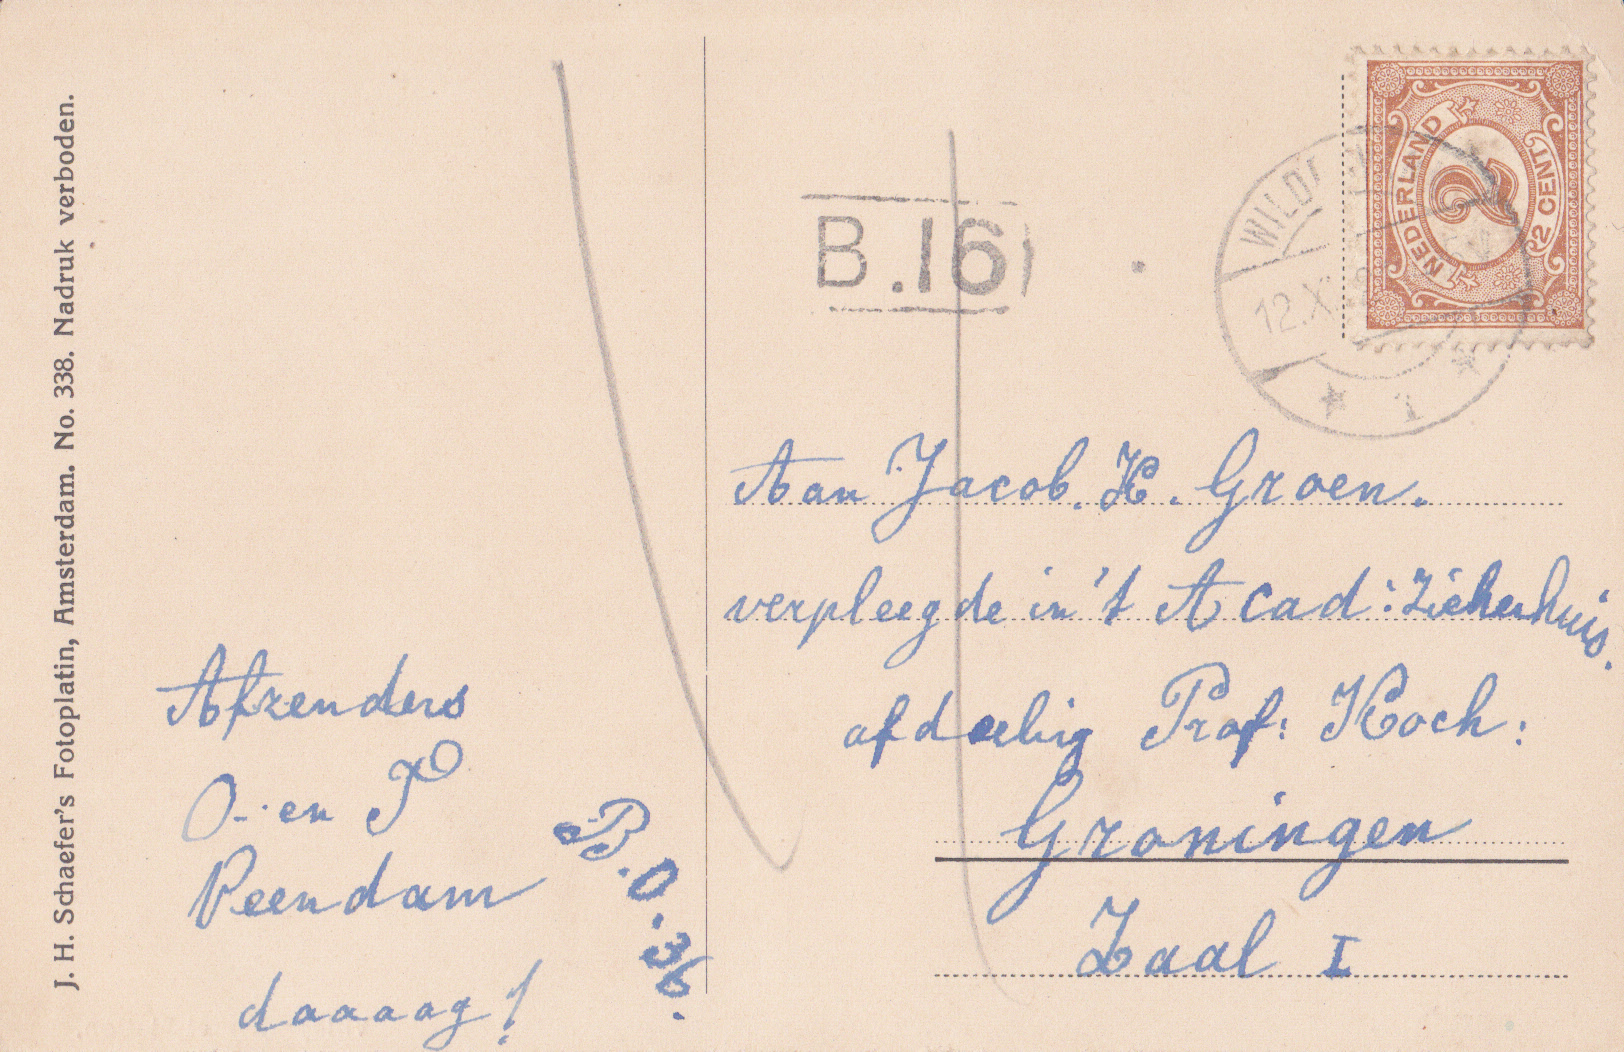 J. H. Schaefer's Fotoplatin, Amsterdam. No. 338. Nadruk verboden.
Afzenders
O. en P
Veendam
daaaag!
B.O. 36.
B.16
NEDERLAND
2
2 CENT
WILD
12.X
1
Aan Jacob. H. Groen.
verpleegde in 't Acad: Ziekenhuis.
afdeelig Prof: Koch:
Groningen
Zaal I